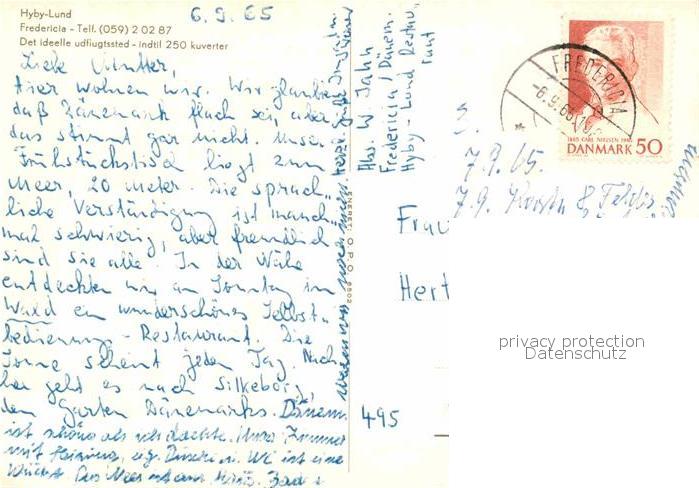 Hyby-Lund
Fredericia - Telf. (059) 2 02 87
Det ideelle udflugtssted - indtil 250 kuverter
6.9.65
Liebe Mutter,
hier wohnen wir. Wir glaubten
daß Dänemark flach sei, aber
das stimmt gar nicht. Unser
Frühstückstisch liegt zum
Meer, 20 Meter. Die sprach-
liche Verständigung ist manch-
mal schwierig, aber freundlich
sind sie alle. In der Nähe
entdeckten wir am Sonntag im
Wald ein wunderschönes Selbst-
bedienung - Restaurant. Die
Sonne scheint jeden Tag. Nach-
her geht es nach Silkeborg,
den Garten Dänemarks. Dänem.
ist schöner als ich dachte. Unser Zimmer
mit Heizung, eig. Dusche u. WC ist eine
Wucht. Das Meer ist am
ENERET: O.P.O. 8802
Abs. W. Jahn
Fredericia / Dänem.
Hyby - Lund Restau-
rant
FREDERICIA
-6.9.65
1865 CARL NIELSEN 1965
DANMARK 50
7.9.65.
7.9.
Frau
Hert
495
privacy protection
Datenschutz